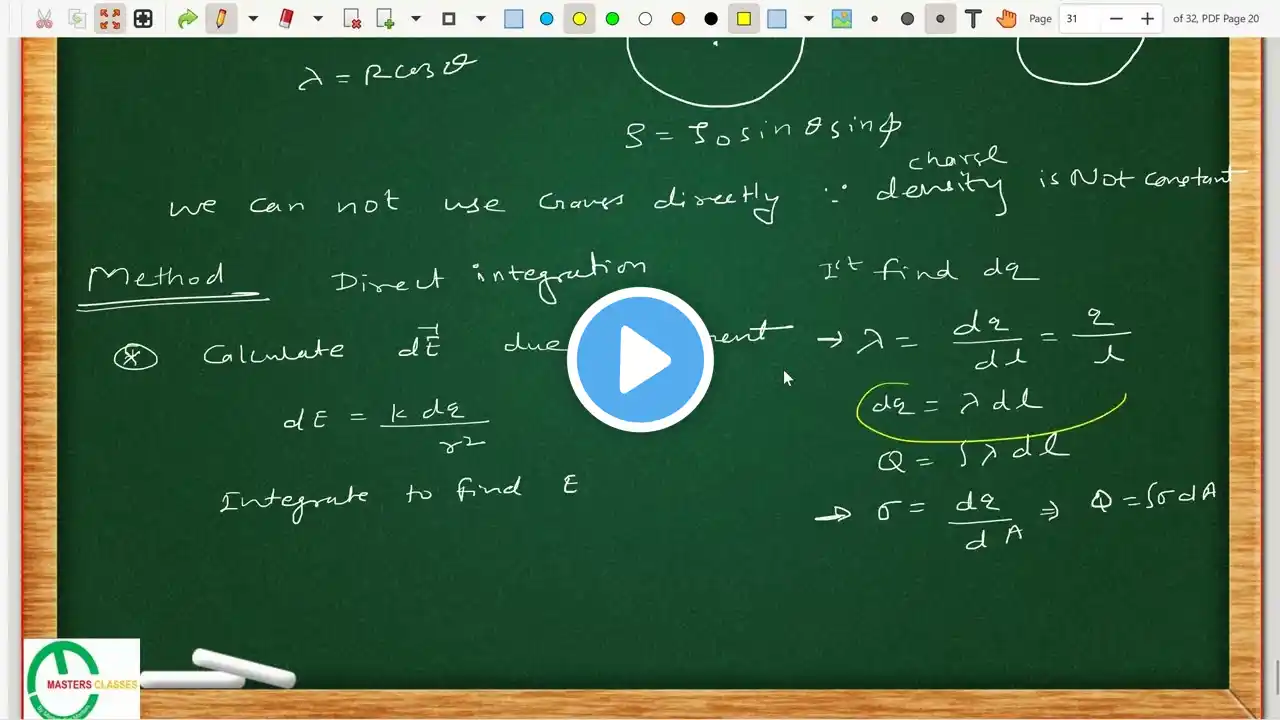 Page 31 of 32, PDF Page 20
λ = R cos θ
ρ = ρ0 sin θ sin φ
we can not use Gauss directly ∵ charge density is Not constant
Method Direct integration
Ist find dq
* Calculate dE⃗ due
→ λ = dq/dl = q/l
dE = k dq / r²
dq = λ dl
Q = ∫ λ dl
Integrate to find E
→ σ = dq/dA ⇒ Q = ∫σ dA
MASTERS CLASSES